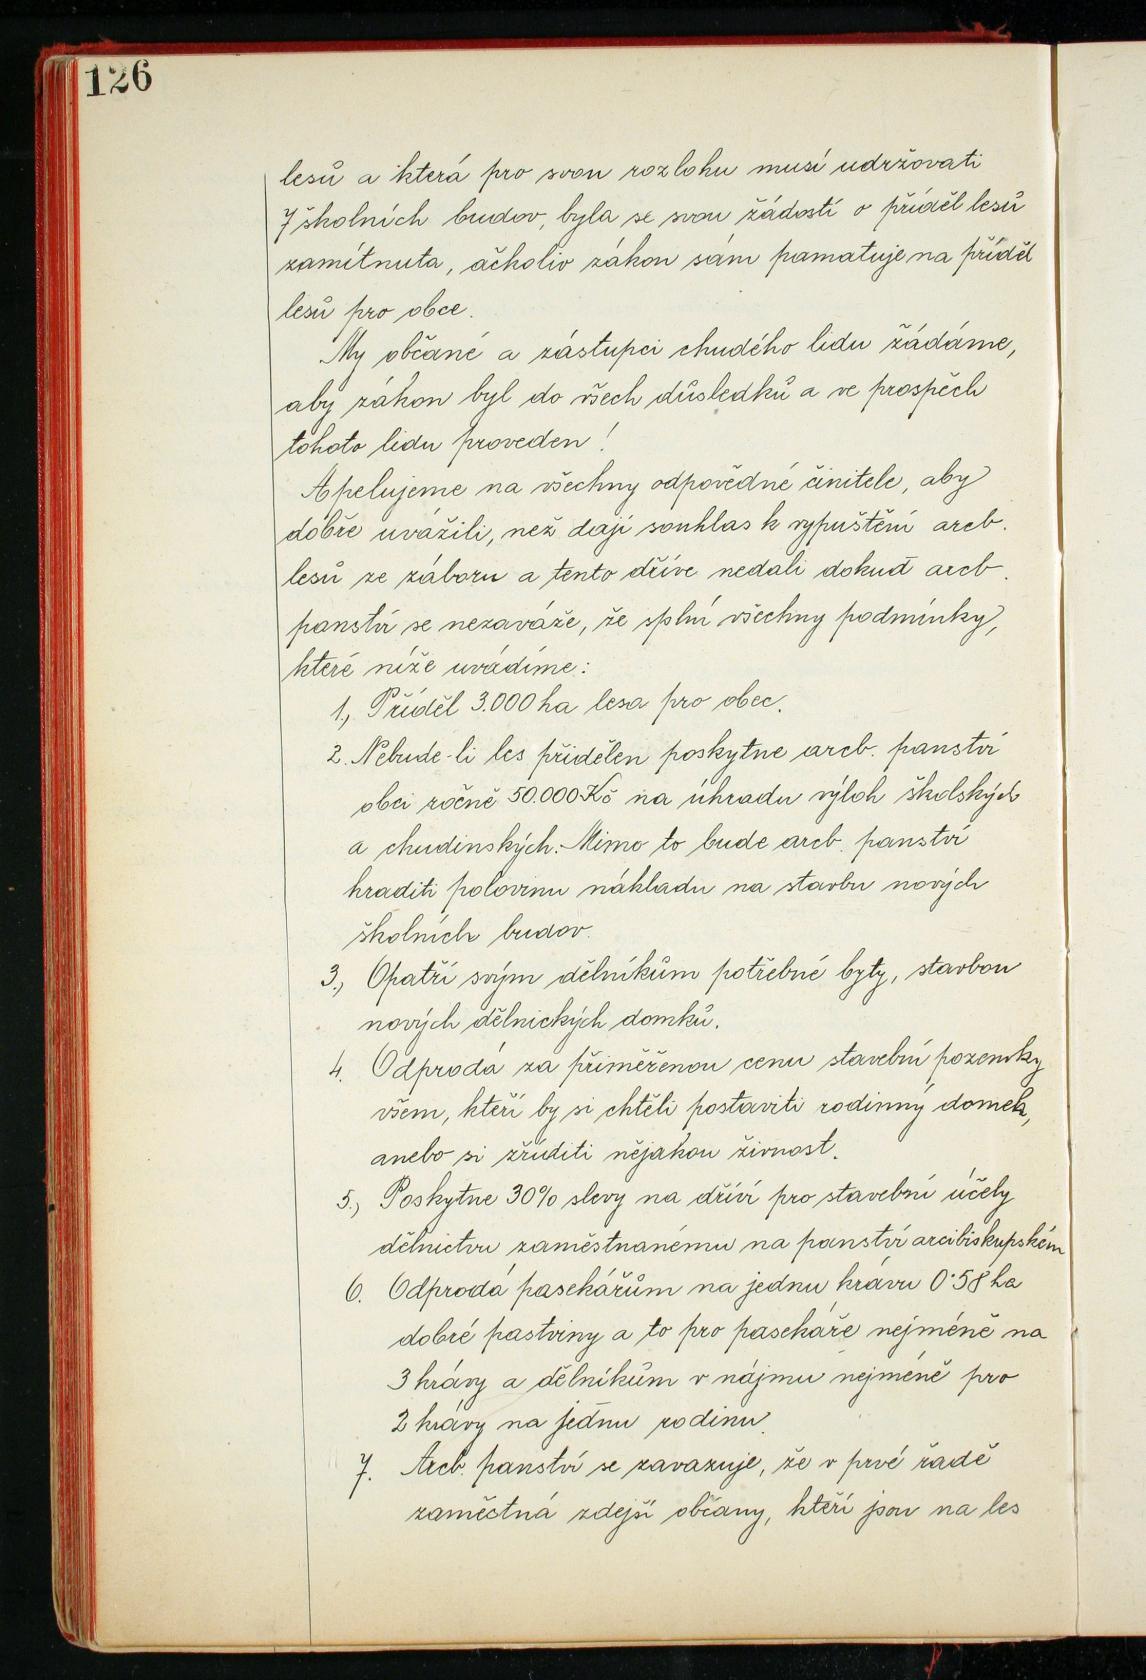 126
lesů a která pro svou rozlohu musí udržovati
7 školních budov, byla se svou žádostí o příděl lesů
zamítnuta, ačkoliv zákon sám pamatuje na příděl
lesů pro obce.
My občané a zástupci chudého lidu žádáme,
aby zákon byl do všech důsledků a ve prospěch
tohoto lidu proveden!
Apelujeme na všechny odpovědné činitele, aby
dobře uvážili, než dají souhlas k vypuštění arcb.
lesů ze záboru a tento dříve nedali dokud arcb.
panství se nezaváže, že splní všechny podmínky,
které níže uvádíme:
1., Příděl 3.000 ha lesa pro obec.
2. Nebude-li les přidělen poskytne arcb. panství
obci ročně 50.000 Kč na úhradu výloh školských
a chudinských. Mimo to bude arcb. panství
hraditi polovinu nákladu na stavbu nových
školních budov.
3., Opatří svým dělníkům potřebné byty, stavbou
nových dělnických domků.
4. Odprodá za přiměřenou cenu stavební pozemky
všem, kteří by si chtěli postaviti rodinný domek,
anebo si zříditi nějakou živnost.
5., Poskytne 30% slevy na dříví pro stavební účely
dělnictvu zaměstnanému na panství arcibiskupském
6. Odprodá pasekářům na jednu krávu 0·58 ha
dobré pastviny a to pro pasekáře nejméně na
3 krávy a dělníkům v nájmu nejméně pro
2 krávy na jednu rodinu.
7. Arcb. panství se zavazuje, že v prvé řadě
zaměstná zdejší občany, kteří jsou na les